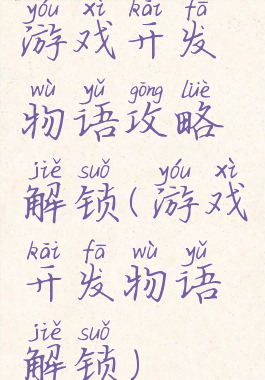 yóu xì kāi fā
游戏开发
wù yǔ gōng lüè
物语攻略
jiě suǒ yóu xì
解锁(游戏
kāi fā wù yǔ
开发物语
jiě suǒ
解锁)